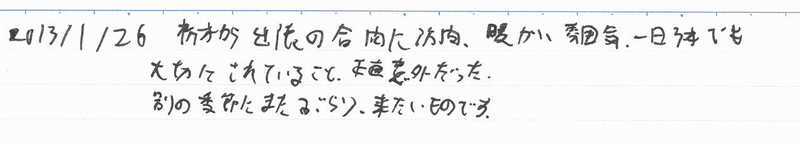 2013/1/26 枚方から出張の合間に訪問、暖かい雰囲気、一日3本でも
大切にされていること、正直意外だった。
別の季節にまたぶらり、来たいものです。